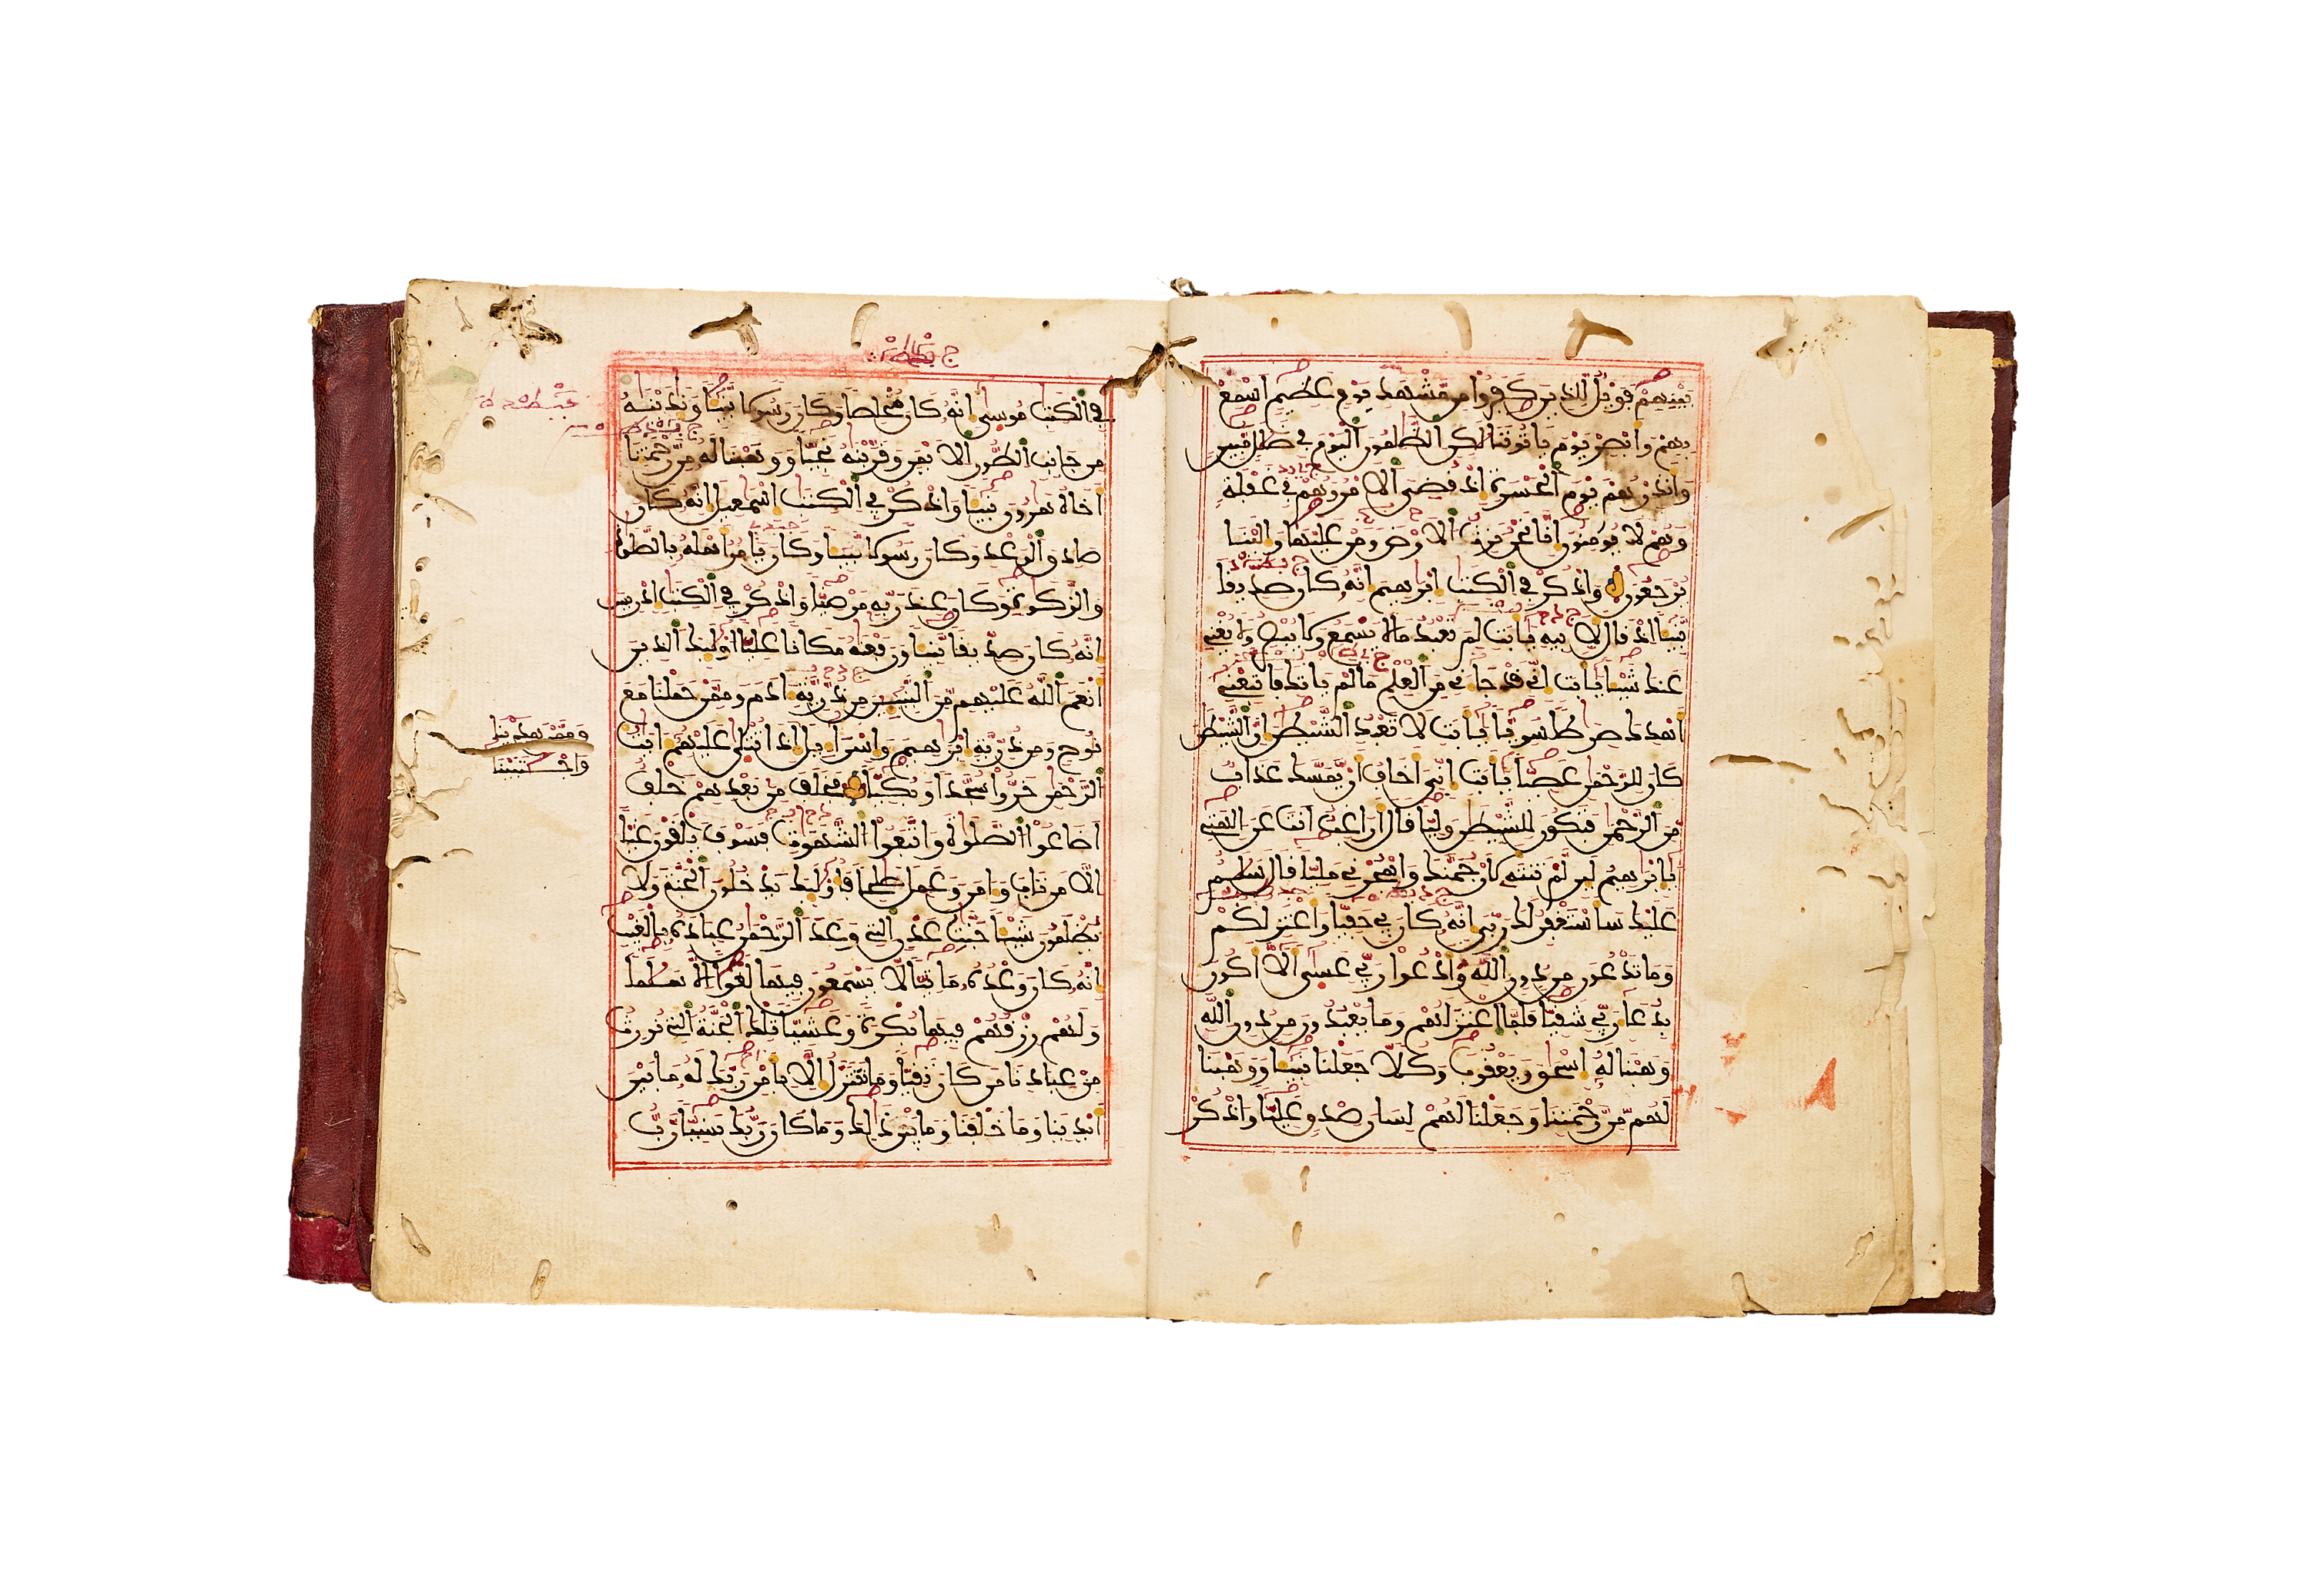 بينهم فويل للذين كفروا من مشهد يوم عظيم اسمع
بهم وابصر يوم ياتوننا لكن الظلمون اليوم في ضلل مبين
وانذرهم يوم الحسرة اذ قضي الامر وهم في غفلة
وهم لا يومنون انا نحن نرث الارض ومن عليها والينا
يرجعون واذكر في الكتب ابرهيم انه كان صديقا
نبيا اذ قال لابيه يابت لم تعبد ما لا يسمع ولا يبصر ولا يغني
عنك شيا يابت اني قد جاني من العلم ما لم ياتك فاتبعني
اهدك صرطا سويا يابت لا تعبد الشيطن ان الشيطن
كان للرحمن عصيا يابت اني اخاف ان يمسك عذاب
من الرحمن فتكون للشيطن وليا قال اراغب انت عن الهتي
يابرهيم لين لم تنته لارجمنك واهجرني مليا قال سلم
عليك ساستغفر لك ربي انه كان بي حفيا واعتزلكم
وما تدعون من دون الله وادعوا ربي عسى الا اكون
بدعا ربي شقيا فلما اعتزلهم وما يعبدون من دون الله
وهبنا له اسحق ويعقوب وكلا جعلنا نبيا ووهبنا
لهم من رحمتنا وجعلنا لهم لسان صدق عليا واذكر
في الكتب موسى انه كان مخلصا وكان رسولا نبيا وندينه
من جانب الطور الايمن وقربنه نجيا ووهبنا له من رحمتنا
اخاه هرون نبيا واذكر في الكتب اسمعيل انه كان
صادق الوعد وكان رسولا نبيا وكان يامر اهله بالصلوة
والزكوة وكان عند ربه مرضيا واذكر في الكتب ادريس
انه كان صديقا نبيا ورفعنه مكانا عليا اوليك الذين
انعم الله عليهم من النبيين من ذرية ادم وممن حملنا مع
نوح ومن ذرية ابرهيم واسراييل اذا تتلى عليهم ايت
وممن هدينا
واجتبينا
الرحمن خروا سجدا وبكيا فخلف من بعدهم خلف
اضاعوا الصلوة واتبعوا الشهوت فسوف يلقون غيا
الا من تاب وامن وعمل صلحا فاوليك يدخلون الجنة ولا
يظلمون شيا جنت عدن التي وعد الرحمن عباده بالغيب
انه كان وعده ماتيا لا يسمعون فيها لغوا الا سلما
ولهم رزقهم فيها بكرة وعشيا تلك الجنة التي نورث
من عبادنا من كان تقيا وما نتنزل الا بامر ربك له ما بين
ايدينا وما خلفنا وما بين ذلك وما كان ربك نسيا رب